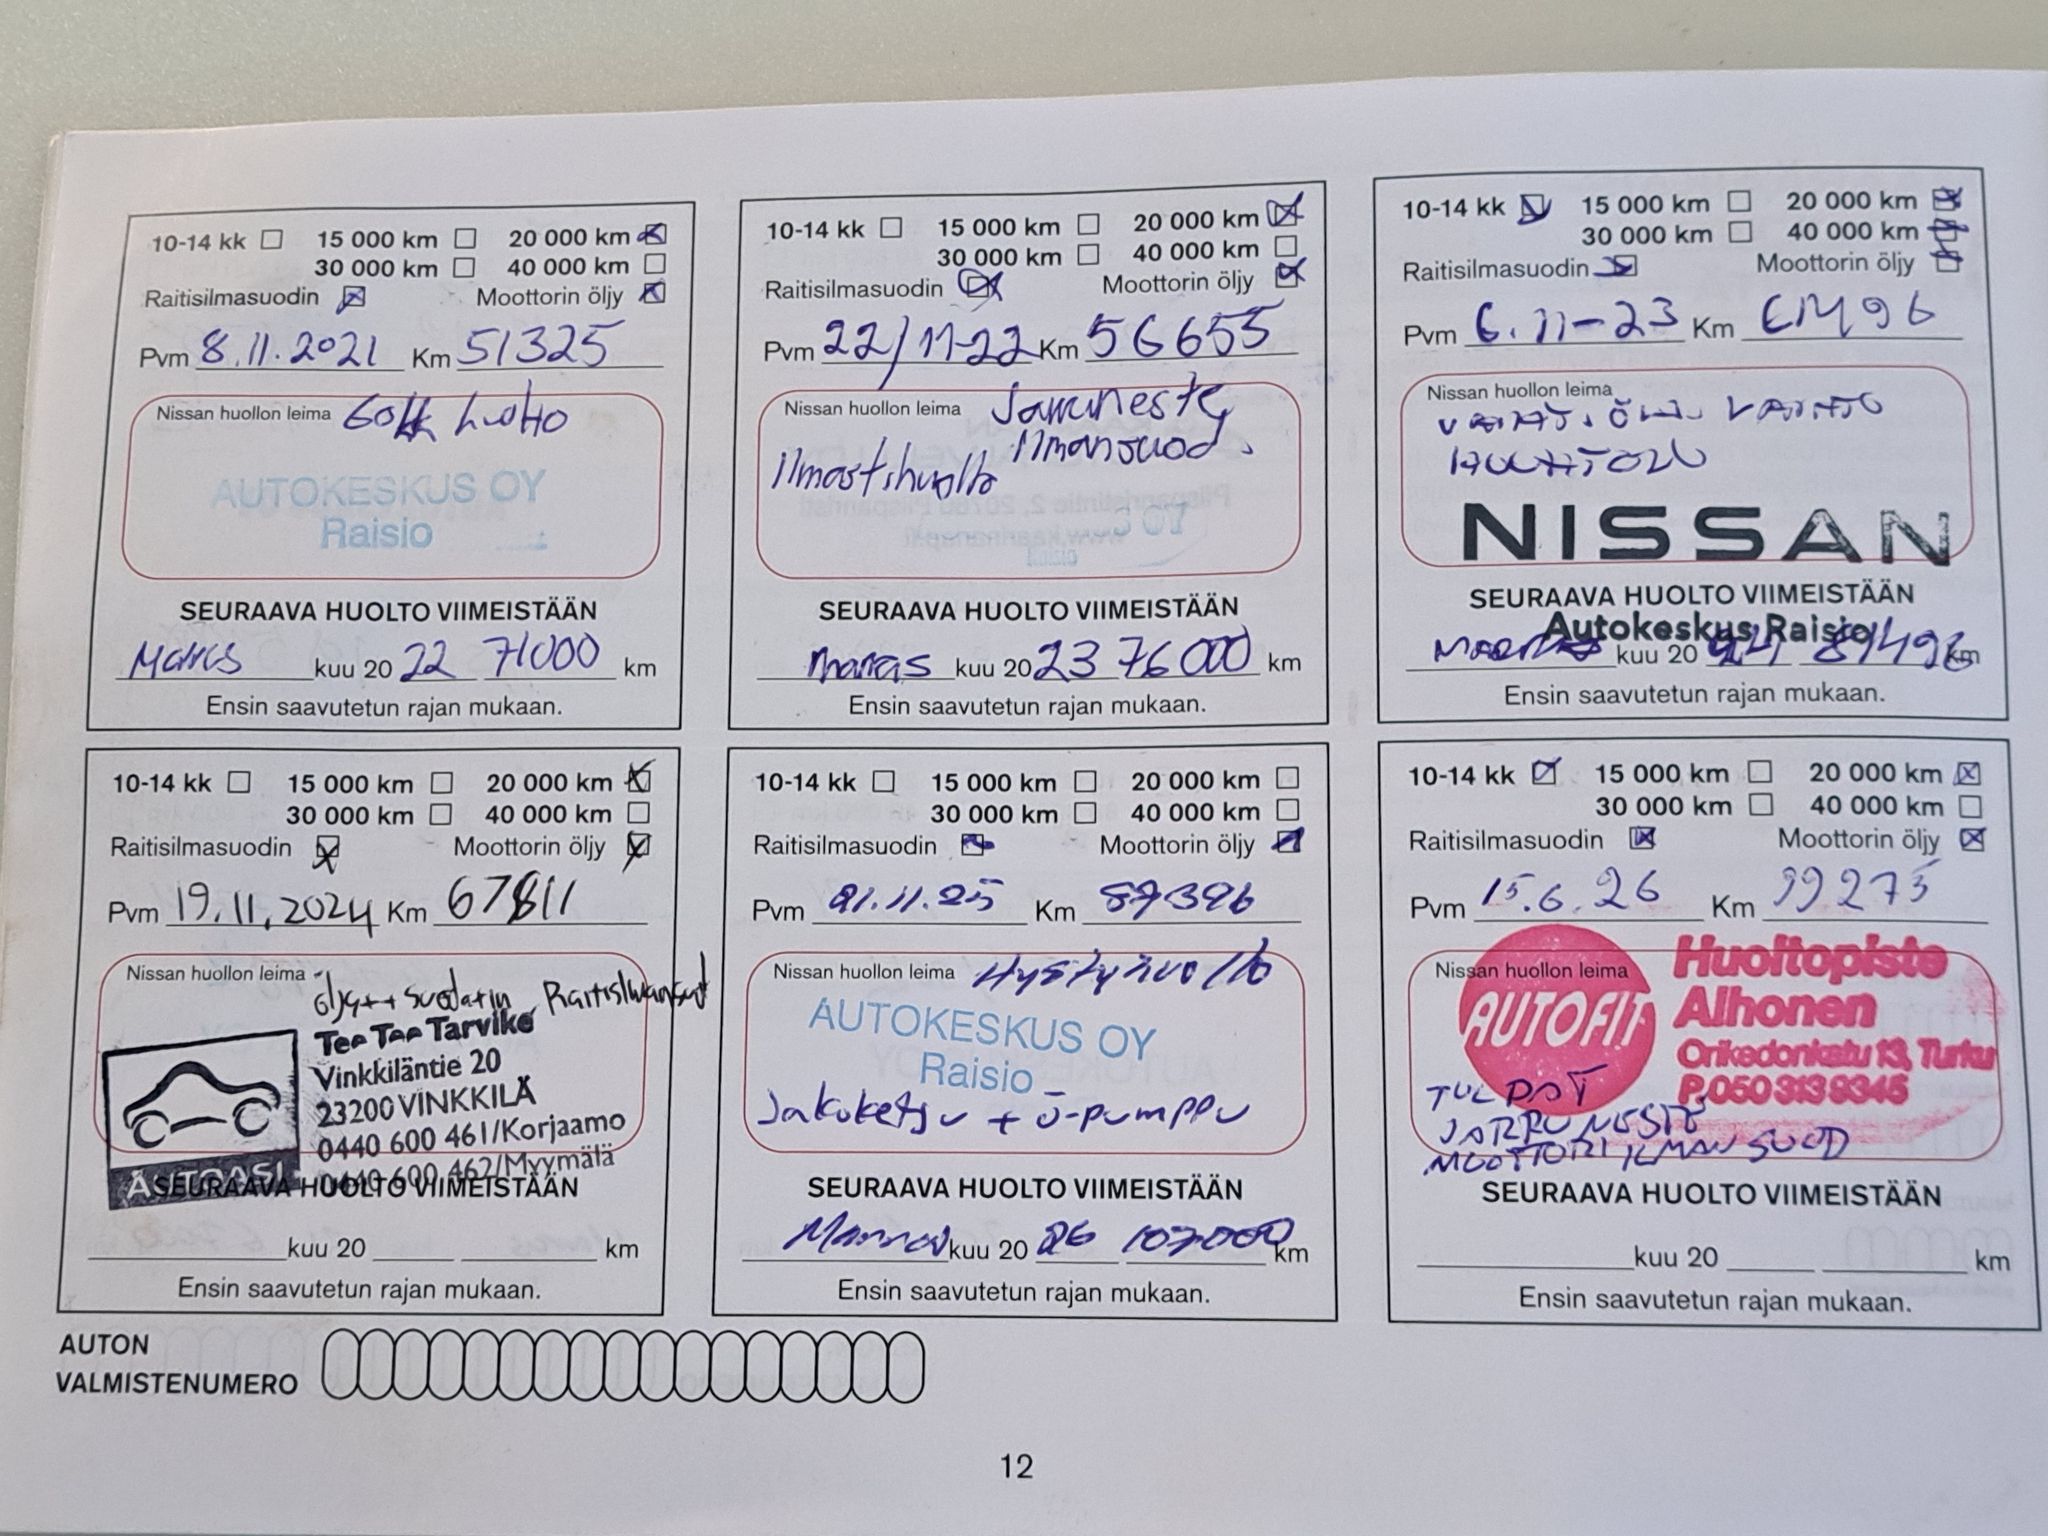 10-14 kk 15 000 km 20 000 km
30 000 km 40 000 km
Raitisilmasuodin Moottorin öljy
Pvm 8.11.2021 Km 51325
Nissan huollon leima 60kk huolto
AUTOKESKUS OY
Raisio
SEURAAVA HUOLTO VIIMEISTÄÄN
Marras kuu 20 22 71000 km
Ensin saavutetun rajan mukaan.
10-14 kk 15 000 km 20 000 km
30 000 km 40 000 km
Raitisilmasuodin Moottorin öljy
Pvm 22/11-22 Km 56655
Nissan huollon leima Jarruneste,
Ilmansuod.
Ilmast.huolto
SEURAAVA HUOLTO VIIMEISTÄÄN
marras kuu 20 23 76000 km
Ensin saavutetun rajan mukaan.
10-14 kk 15 000 km 20 000 km
30 000 km 40 000 km
Raitisilmasuodin Moottorin öljy
Pvm 6.11-23 Km
Nissan huollon leima
NISSAN
SEURAAVA HUOLTO VIIMEISTÄÄN
Autokeskus Raisio
kuu 20 24 km
Ensin saavutetun rajan mukaan.
10-14 kk 15 000 km 20 000 km
30 000 km 40 000 km
Raitisilmasuodin Moottorin öljy
Pvm 19.11.2024 Km 67811
Nissan huollon leima
Tee Tee Tarvike
Vinkkiläntie 20
23200 VINKKILÄ
0440 600 461/Korjaamo
0440 600 462/Myymälä
AUTOASI
SEURAAVA HUOLTO VIIMEISTÄÄN
kuu 20 km
Ensin saavutetun rajan mukaan.
10-14 kk 15 000 km 20 000 km
30 000 km 40 000 km
Raitisilmasuodin Moottorin öljy
Pvm 21.11.25 Km 87396
Nissan huollon leima
AUTOKESKUS OY
Raisio
Jakoketju + ö-pumppu
SEURAAVA HUOLTO VIIMEISTÄÄN
Marras kuu 20 26 107000 km
Ensin saavutetun rajan mukaan.
10-14 kk 15 000 km 20 000 km
30 000 km 40 000 km
Raitisilmasuodin Moottorin öljy
Pvm 15.6.26 Km 99275
Nissan huollon leima
AUTOFIT
Huoltopiste
Alhonen
Orikedonkatu 13, Turku
P.050 313 9345
TULPAT
JARRUNESTE
MOOTTORI ILMANSUOD
SEURAAVA HUOLTO VIIMEISTÄÄN
kuu 20 km
Ensin saavutetun rajan mukaan.
AUTON
VALMISTENUMERO
12